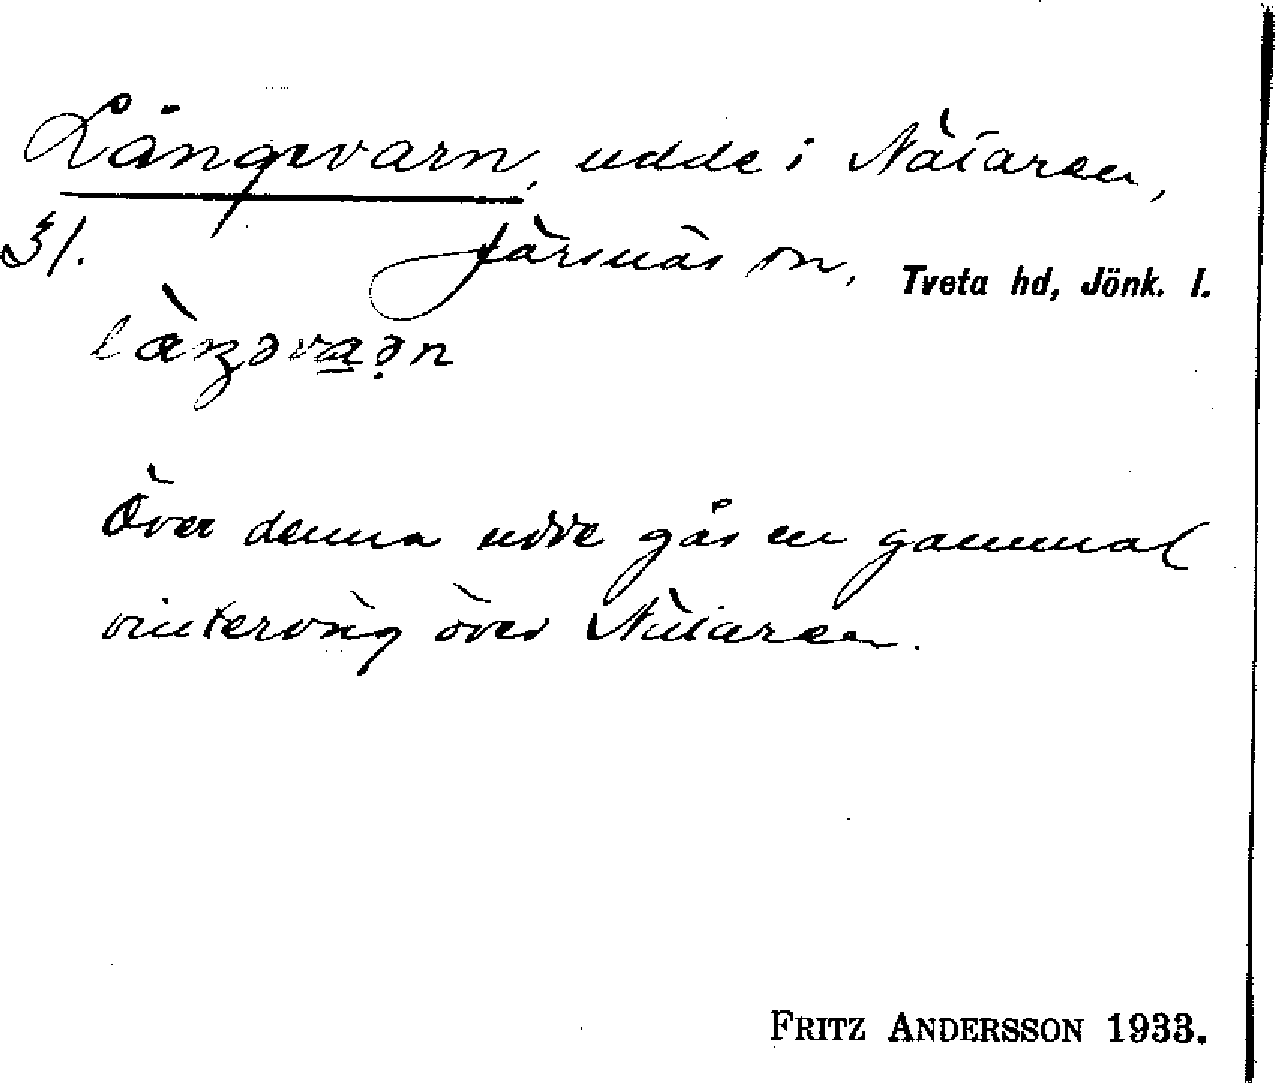 Långevarn, udde i Nätaren,
31. Järsnäs sn, Tveta hd, Jönk. l.
Över denna udde går en gammal
vinterväg över Nätaren.
FRITZ ANDERSSON 1933.